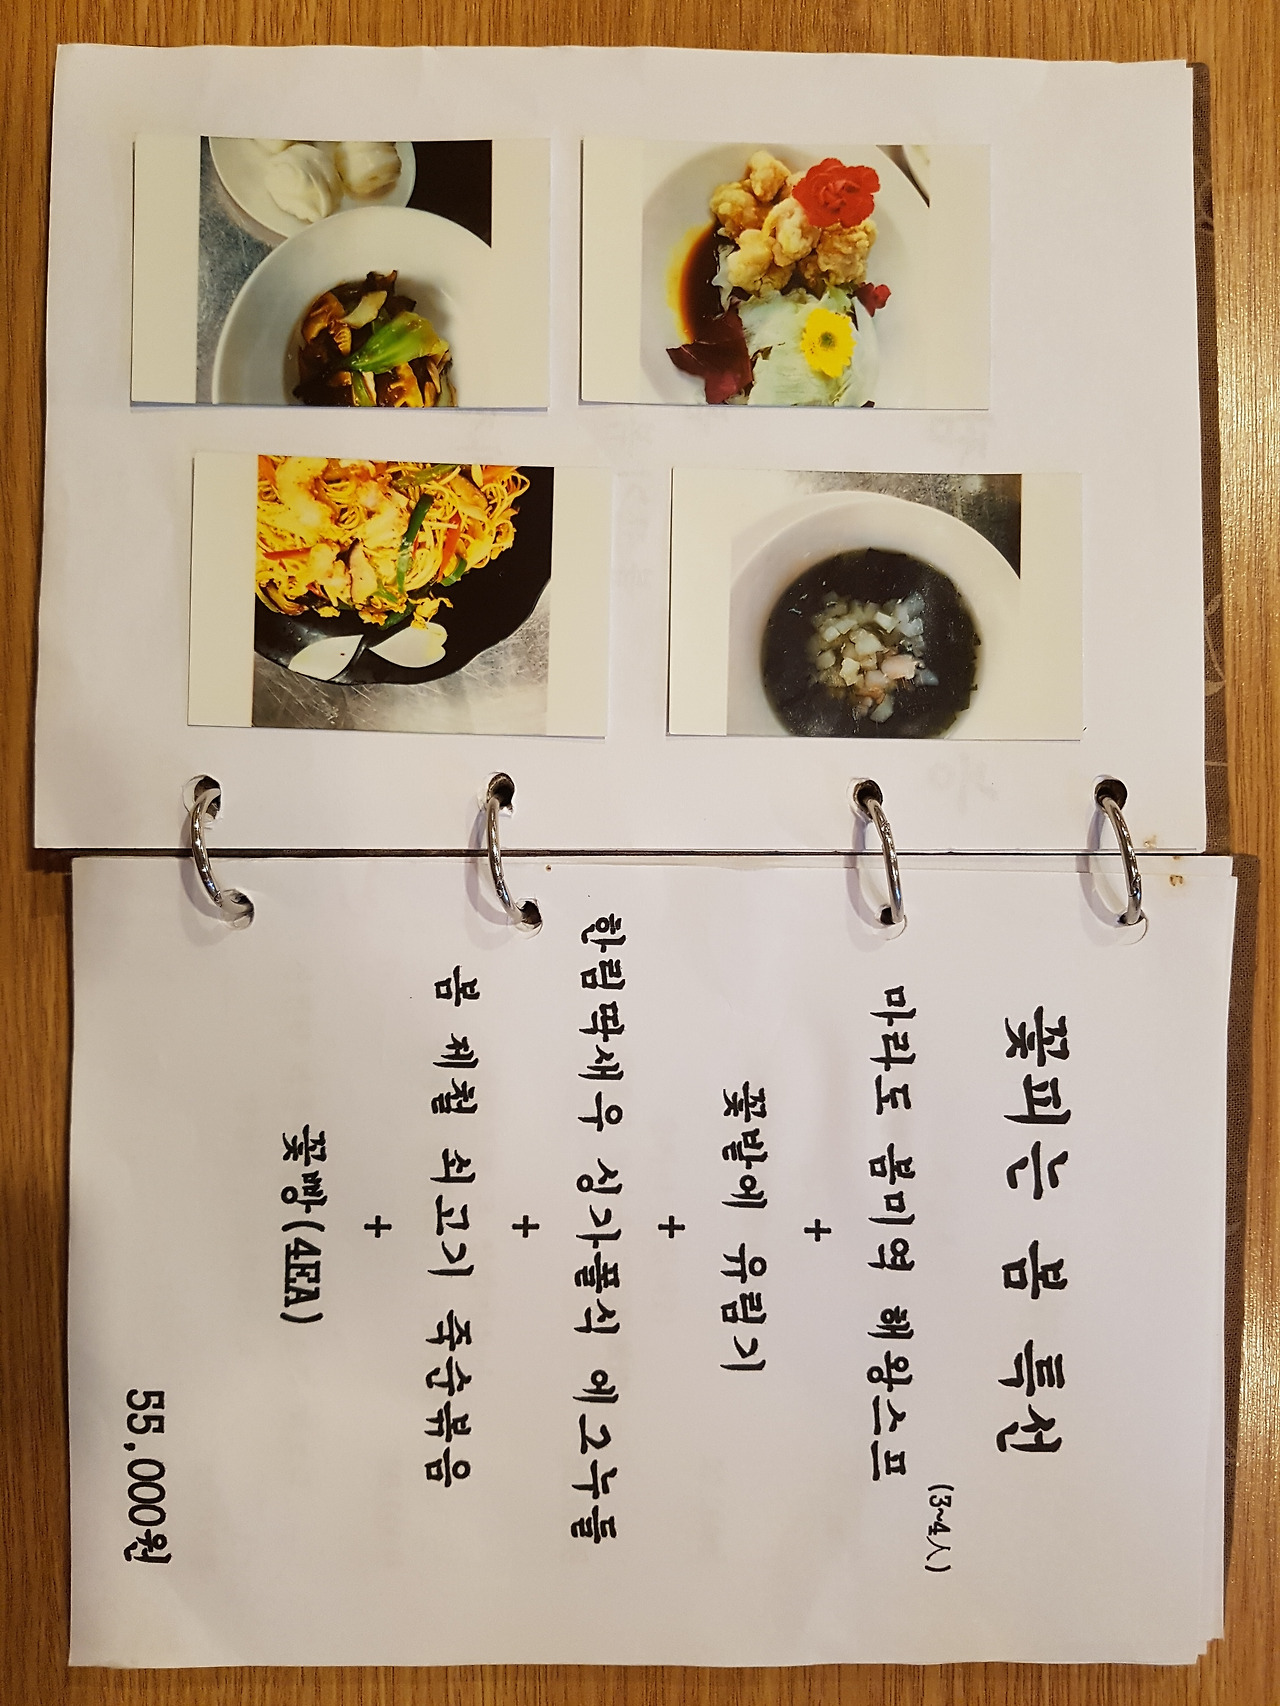 꽃피는 봄 특선
(3~4人)
마라도 봄미역 해왕스프
+
꽃밭에 유림기
+
한림딱새우 싱가폴식 에그누들
+
봄 제철 쇠고기 죽순볶음
+
꽃빵(4EA)
55,000원